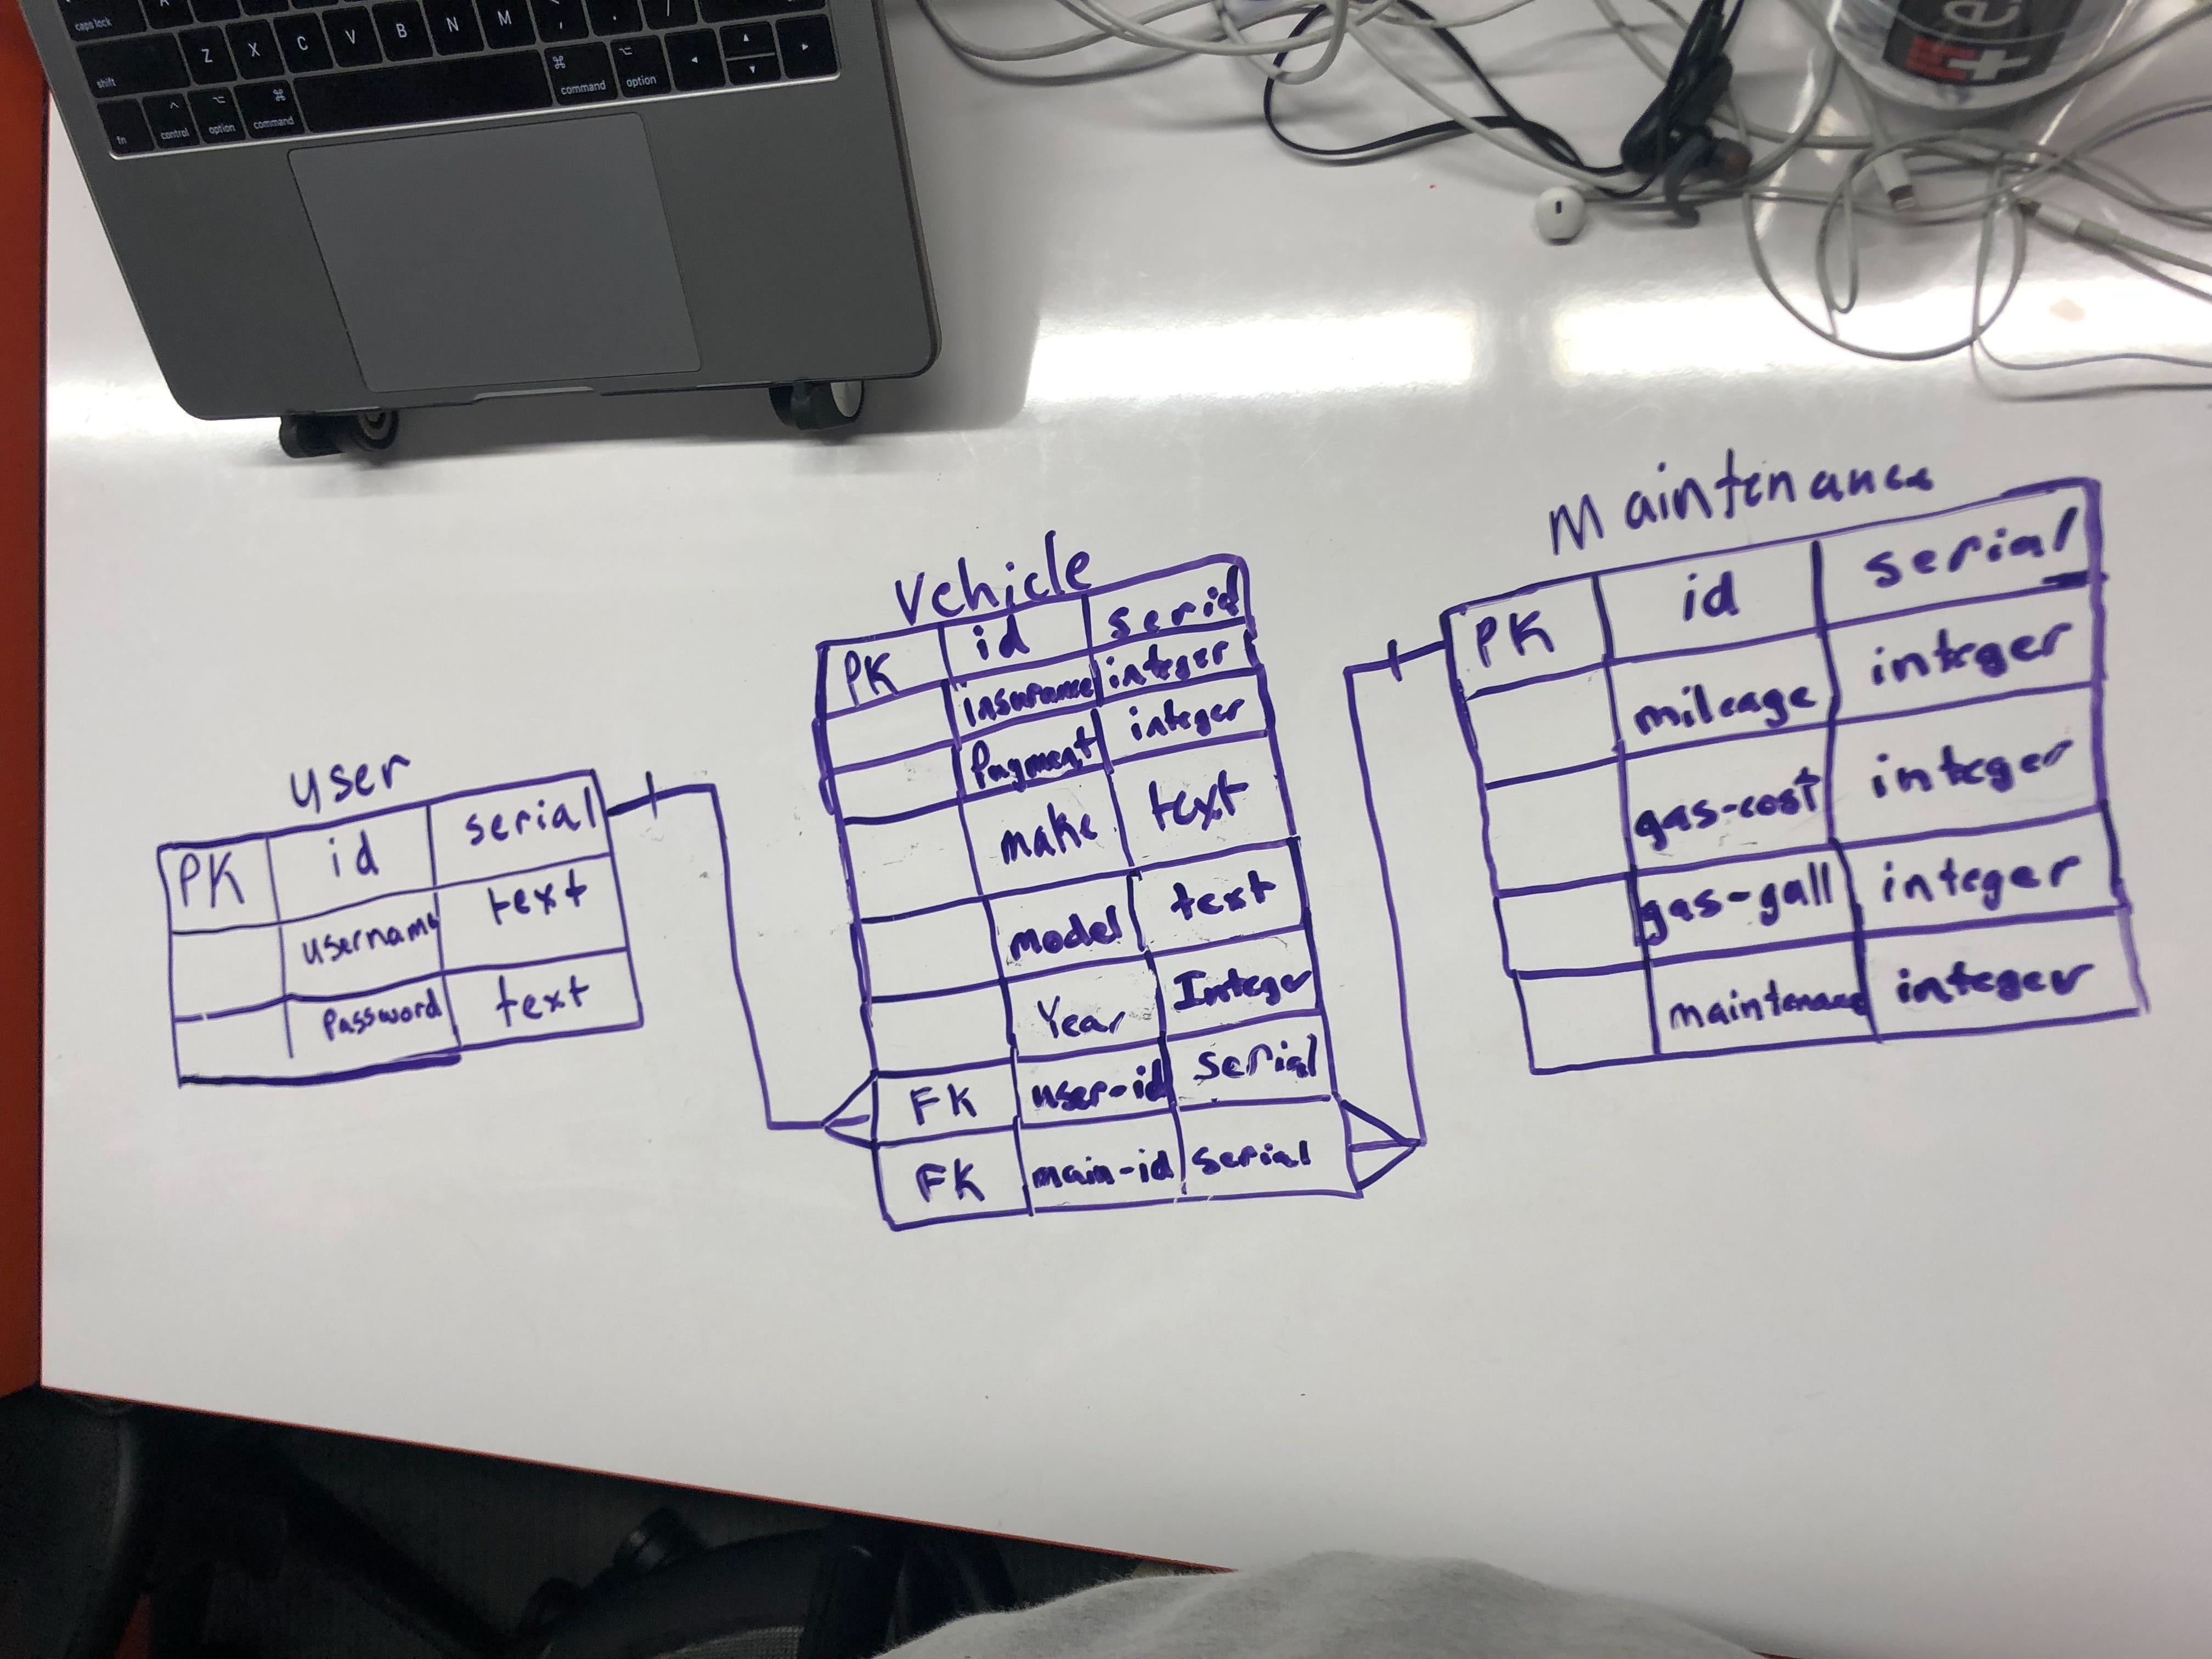 caps lock
shift
Z X C V B N M , . /
fn control option command command option
e.
user
PK id serial
username text
Password text
Vehicle
PK id serial
insurance integer
Payment integer
make text
model text
Year Integer
FK user-id serial
FK main-id serial
Maintenance
PK id serial
mileage integer
gas-cost integer
gas-gall integer
maintenance integer